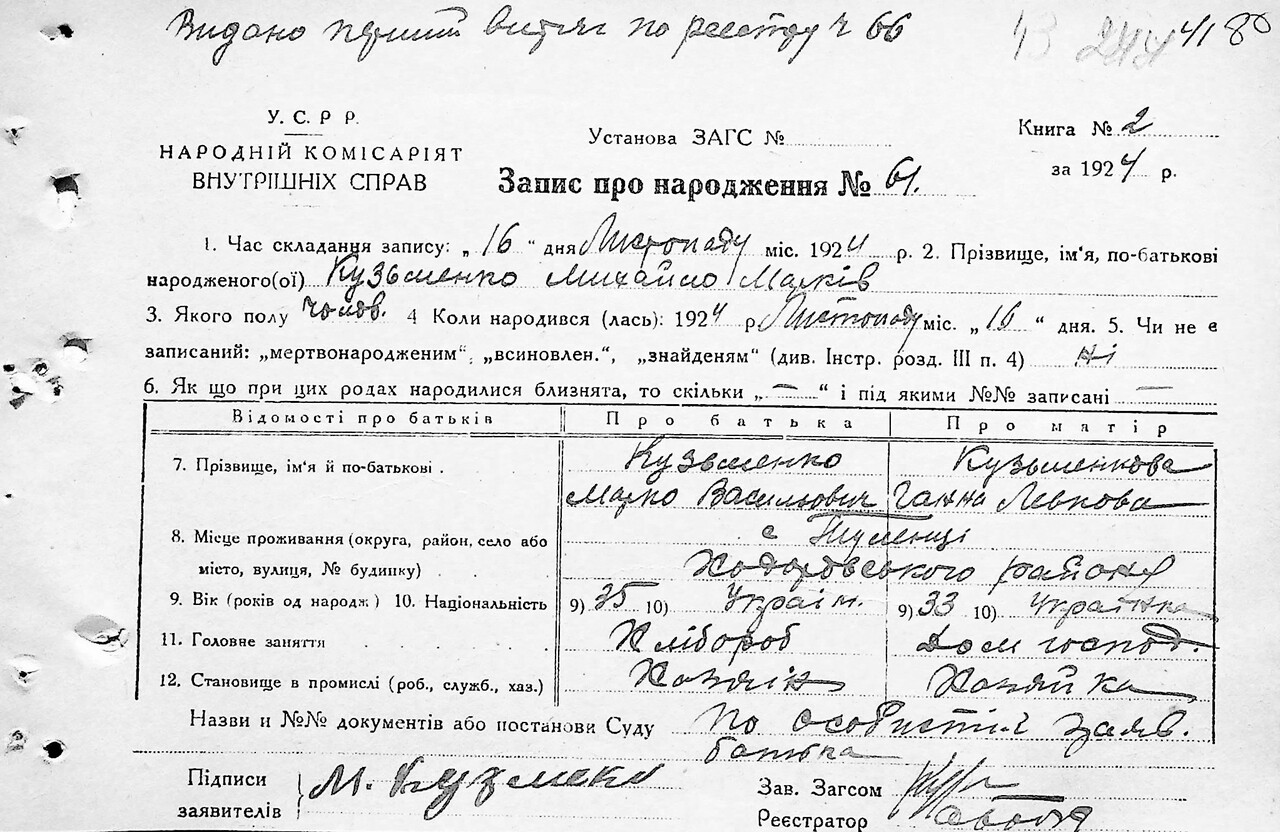 Видано перший витяг по реєстру ч 66
4180
У. С. Р Р.
НАРОДНІЙ КОМІСАРІЯТ
ВНУТРІШНІХ СПРАВ
Установа ЗАГС №
Книга № 2
за 1924 р.
Запис про народження № 61.
1. Час складання запису: „ 16 “ дня Листопаду міс. 1924 р. 2. Прізвище, ім'я, по-батькові
народженого(ої) Кузьменко Михайло Марків
3. Якого полу чолов. 4 Коли народився (лась): 1924 р Листопаду міс. „ 16 “ дня. 5. Чи не є
записаний: „мертвонародженим“, „всиновлен.“, „знайденям“ (див. Інстр. розд. III п. 4) ні
6. Як що при цих родах народилися близнята, то скільки „ — “ і під якими №№ записані —
Відомості про батьків Про батька Про матір
7. Прізвище, ім'я й по-батькові . Кузьменко Кузьменкова
Марко Васильович Ганна Левкова
8. Місце проживання (округа, район, село або с Туленці
місто, вулиця, № будинку) . Ходоровського района
9. Вік (років од народж) 10. Національність 9) 35 10) Україн. 9) 33 10) Українка
11. Головне заняття Хлібороб Дом господ.
12. Становище в промислі (роб., служб., хаз.) Хазяїн Хазяйка
Назви и №№ документів або постанови Суду по особистій заяв.
батька
Підписи
заявителів
М. Кузменко
Зав. Загсом
Реєстратор